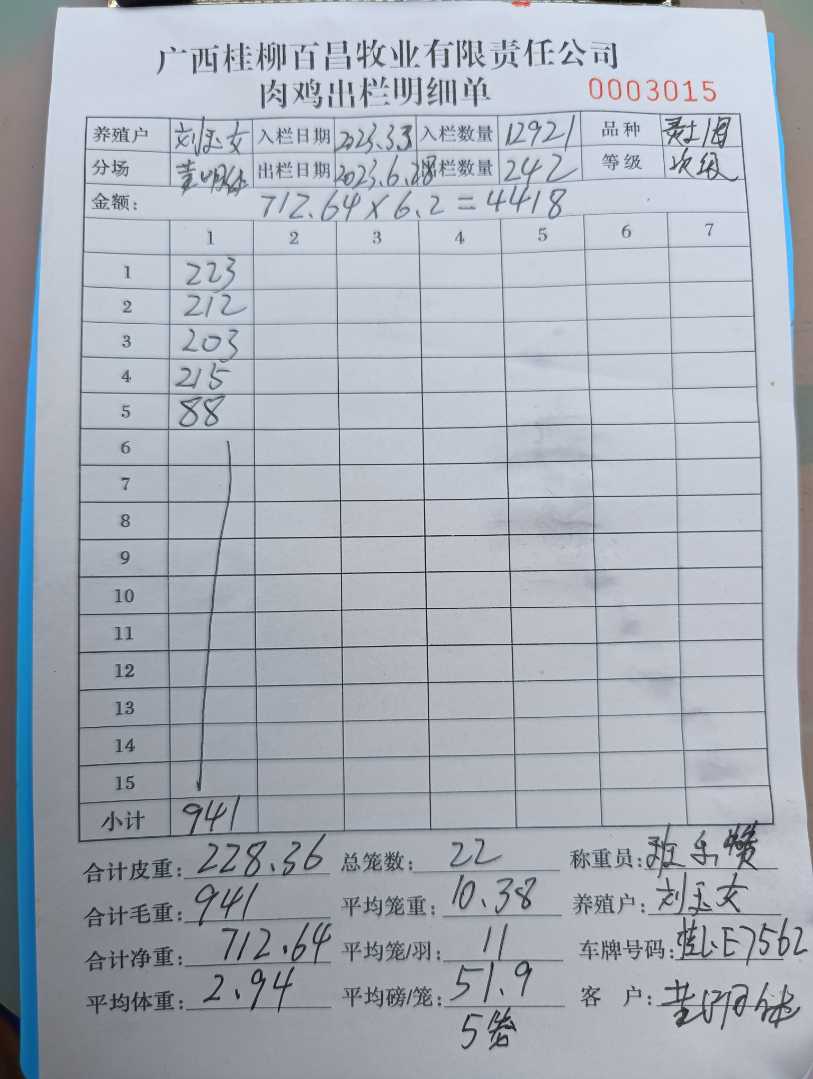 广西桂柳百昌牧业有限责任公司
肉鸡出栏明细单 0003015
养殖户 刘玉女 入栏日期 2023.3.3 入栏数量 12921 品种
分场 出栏日期 2023.6.28 出栏数量 242 等级 次级
金额: 712.64×6.2=4418
1 2 3 4 5 6 7
1 223
2 212
3 203
4 215
5 88
6
7
8
9
10
11
12
13
14
15
小计 941
合计皮重: 228.36 总笼数: 22 称重员:
合计毛重: 941 平均笼重: 10.38 养殖户: 刘玉女
合计净重: 712.64 平均笼/羽: 11 车牌号码: E7562
平均体重: 2.94 平均磅/笼: 51.9 客户: